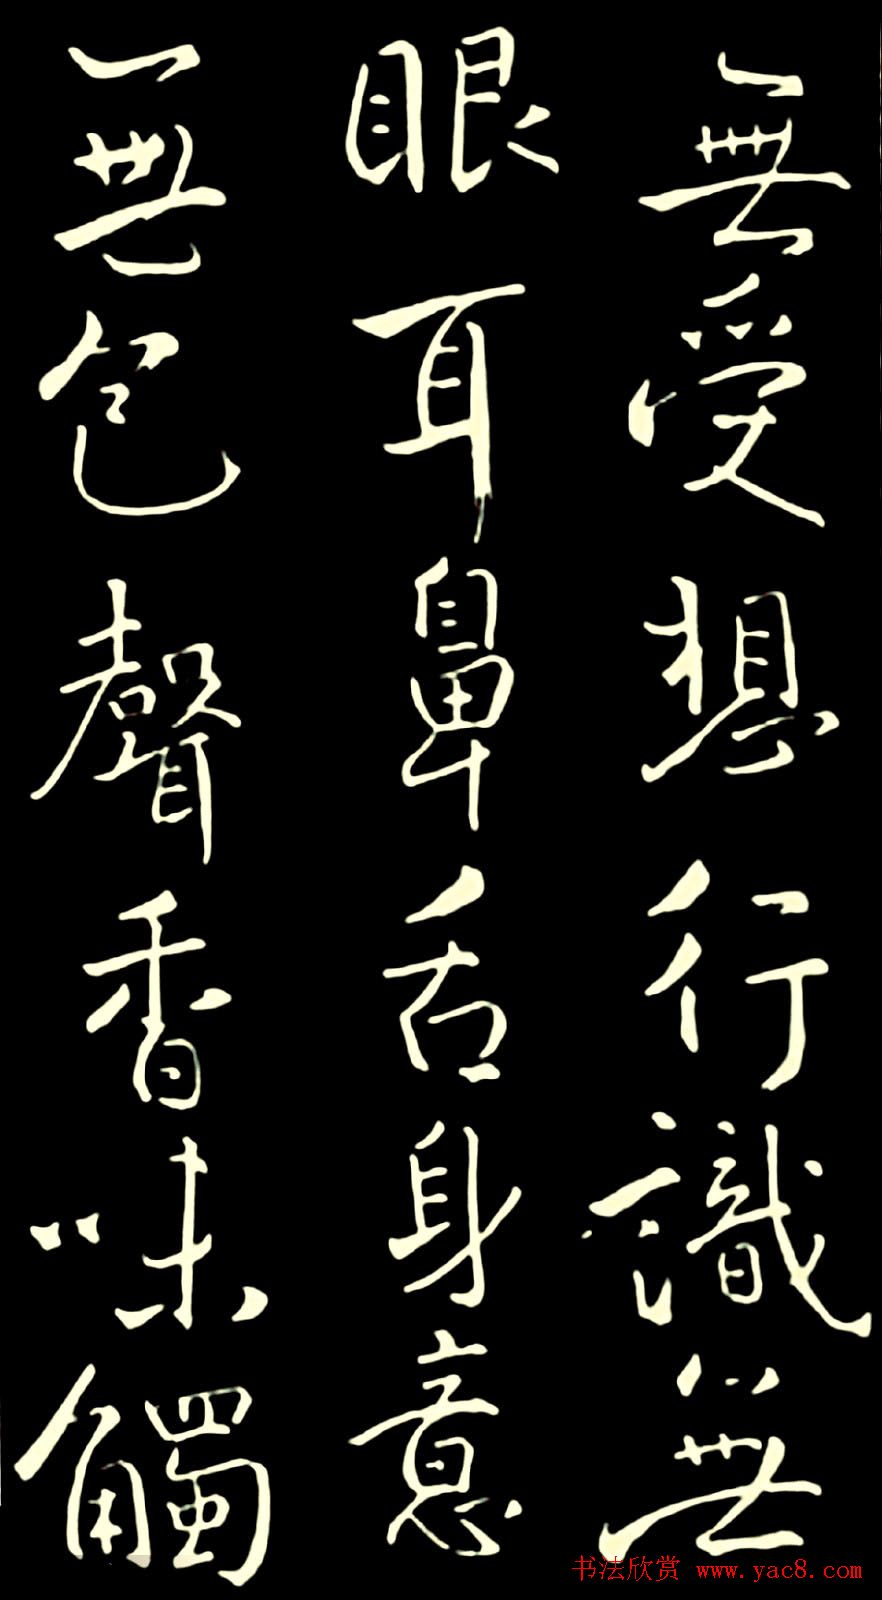 無受想行識無
眼耳鼻舌身意
無色聲香味觸
书法欣赏 www.yac8.com